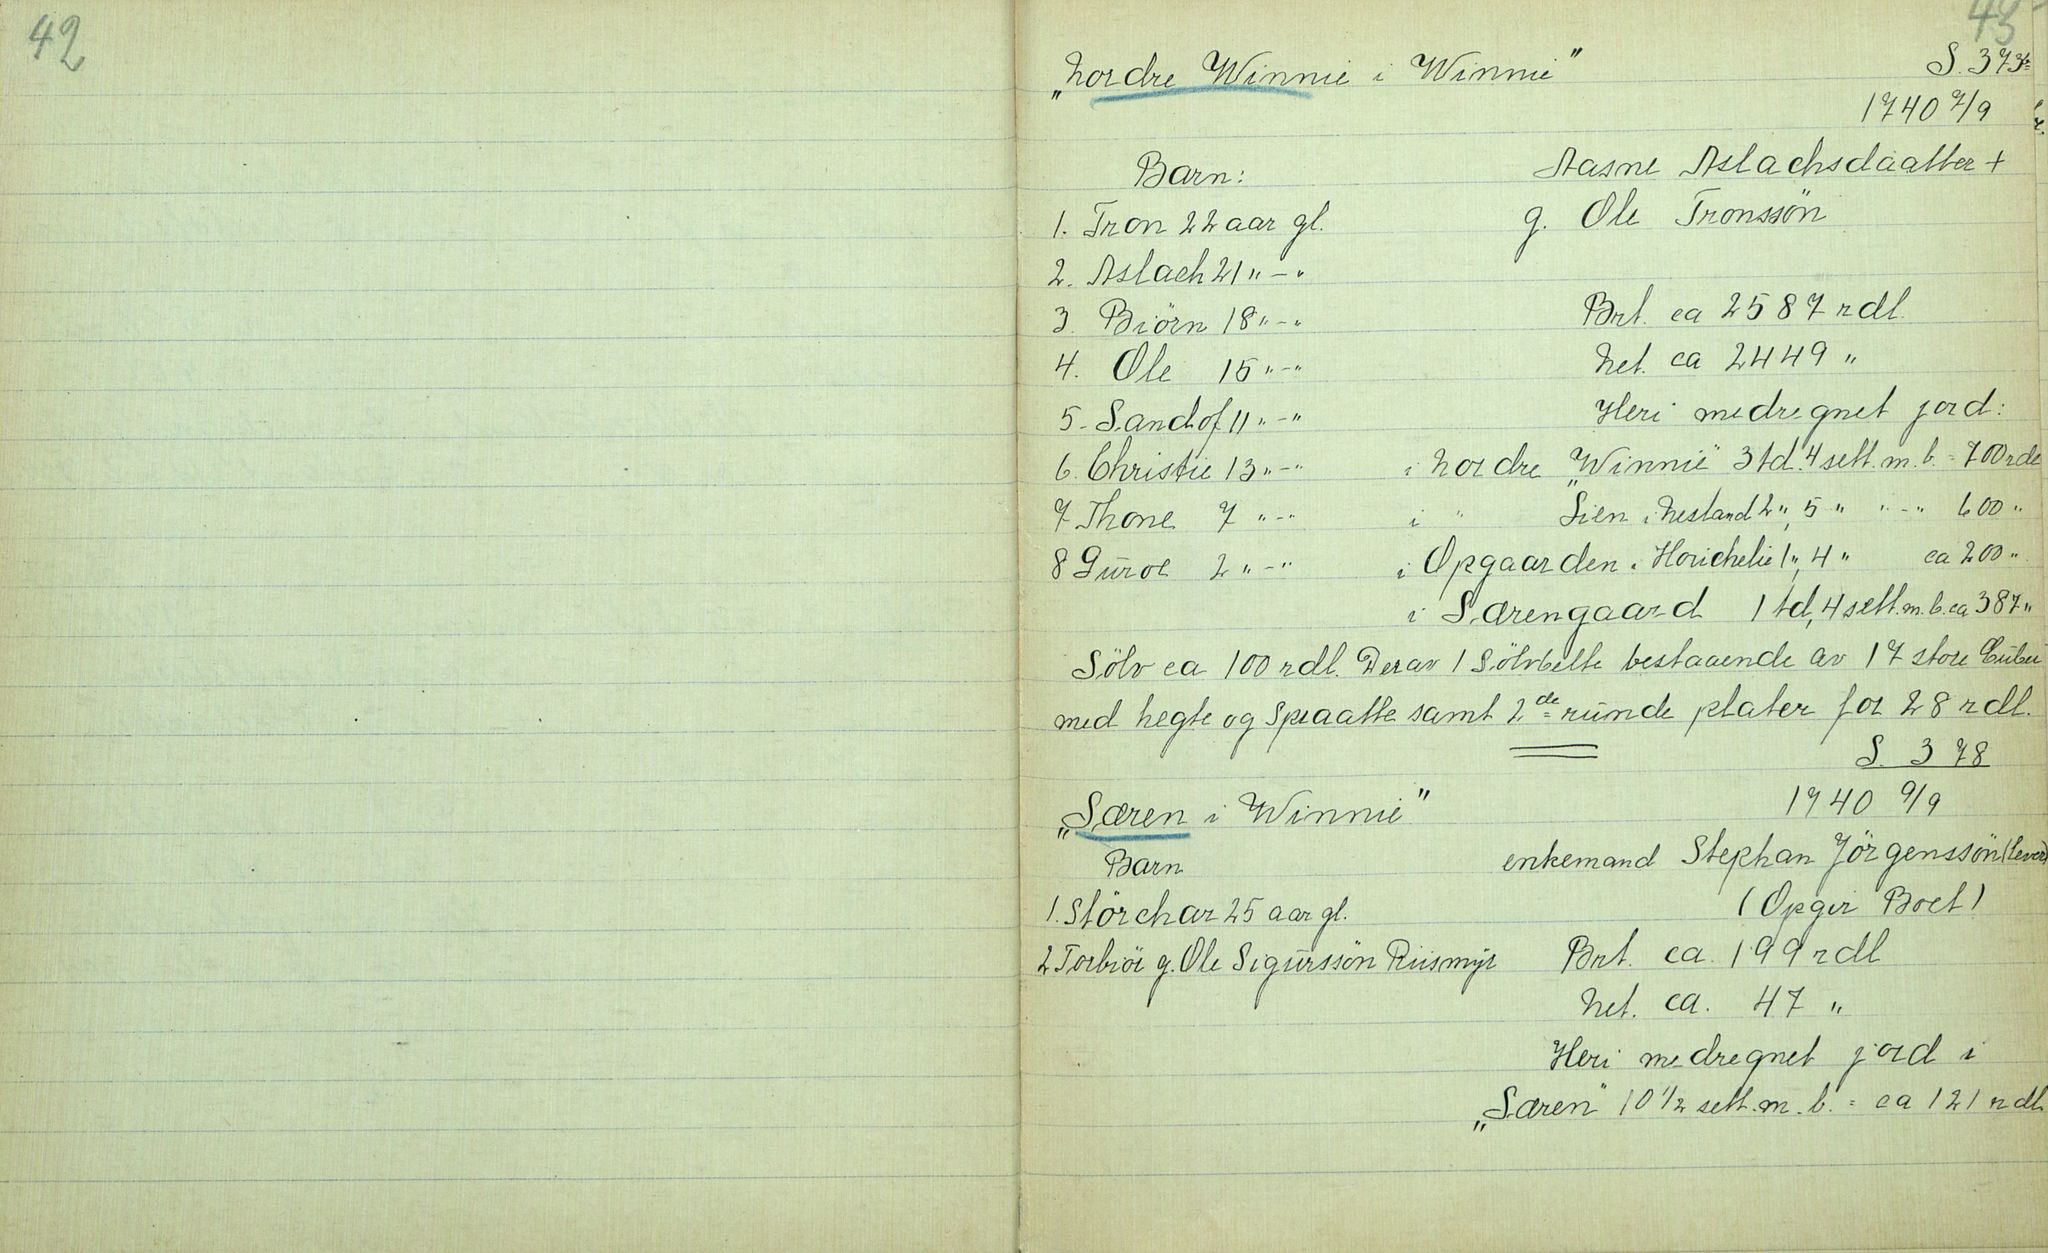 42
43
„Nordre Winnie i Winnie" S. 373
1740 7/9
Barn: Aasne Aslachsdaatter +
1. Tron 22 aar gl. g. Ole Tronssön
2. Aslach 21 " - "
3. Biörn 18 " - " Brt. ca 2587 rdl.
4. Ole 15 " - " Net. ca 2449 "
5. Sandof 11 " - " Heri medregnet jord:
6. Christie 13 " - " i Nordre „Winnie" 3 td. 4 sett. m. b. = 700 rdl
7 Thone 7 " - " i " Lien i Nesland 2 ", 5 " " - " 600 "
8 Guroe 2 " - " i Opgaarden i Hovichelie 1 ", 4 " ca 200 "
i Særengaard 1 td, 4 sett. m. b. ca 387 "
Sölv ca 100 rdl. Derav 1 Sölvbelte bestaaende av 17 store
med hegte og Spraatte samt 2de runde plater for 28 rdl.
S. 378
„Særen i Winnie" 1740 9/9
Barn enkemand Stephan Jörgenssön (lever)
1. Störchar 25 aar gl. (Opgir Boet)
2 Torbiör g. Ole Sigurssön Riismyr Brt. ca. 199 rdl
Net. ca. 47 "
Heri medregnet jord i
„Særen" 10 1/2 sett. m. b. = ca 121 rdl